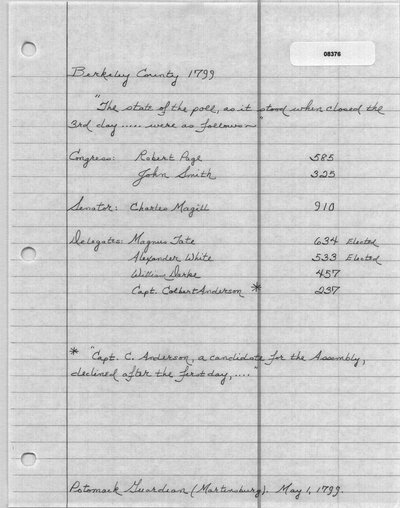 08376
Berkeley County 1799
"The state of the poll, as it stood when closed the
3rd day ..... were as follows~"
Congress: Robert Page 585
John Smith 325
Senator: Charles Magill 910
Delegates: Magnus Tate 634 Elected
Alexander White 533 Elected
William Darke 457
Capt. Colbert Anderson * 237
* "Capt. C. Anderson, a candidate for the Assembly,
declined after the first day, ...."
Potomack Guardian (Martinsburg). May 1, 1799.